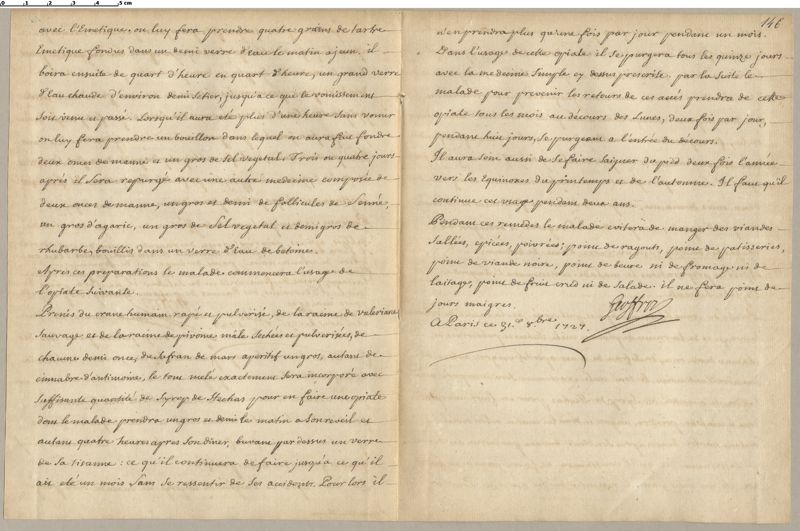 0 1 2 3 4 5 cm
avec l'Emetique, on luy fera prendre quatre grains de tartre
Emetique fondus dans un demi verre d'eau le matin a jeun. il
boira ensuite de quart d'heure en quart d'heure, un grand verre
d'Eau chaude d'environ demi setier, jusqu'a ce que le vomissement
soit venu et passé. Lorsqu'il aura eté plus d'une heure sans vomir
on luy fera prendre un bouillon dans lequel on aura fait fondre
deux onces de manne et un gros de sel vegetal. Trois ou quatre jours
aprés il sera repurgé avec une autre medecine composée de
deux onces de manne, un gros et demi de follicules de Senné,
un gros d'agaric, un gros de Sel vegetal et demi gros de
rhubarbe, bouillis dans un verre d'Eau de betoine.
Apres ces preparations le malade commencera l'usage de
l'opiate suivante.
Prenés du crane humain rapé et pulverisé, de la racine de valeriane
sauvage et de la racine de pivoine mâle sechées et pulverisées, de
chacune demi once, du safran de mars aperitif un gros, autant de
cinnabre d'antimoine, le tout melé exactement sera incorporé avec
suffisante quantité de Syrop de Stechas pour en faire une opiate
dont le malade prendra un gros et demi le matin a son reveil et
autant quatre heures apres son diner, buvant par dessus un verre
de sa tisanne : ce qu'il continuera de faire jusqu'à ce qu'il
ait eté un mois sans se ressentir de ses accidents. Pour lors il
146
n'en prendra plus qu'une fois par jour pendant un mois.
Dans l'usage de cette opiate il se purgera tous les quinze jours
avec la medecine simple cy dessus prescrite. par la suite le
malade pour prevenir les retours de ces accés prendra de cette
opiate tous les mois au decours des Lunes, deux fois par jour,
pendant huit jours, se purgeant a l'entrée du decours.
Il aura soin aussi de se faire saigner du pied deux fois l'année
vers les Equinoxes du printemps et de l'automne. Il faut qu'il
continue cet usage pendant deux ans.
Pendant ces remedes le malade evitera de manger des viandes
sallées, epicées, poivrées; point de ragouts, point de patisseries,
point de viande noire, point de beure ni de fromage ni de
laitage, point de fruit crud ni de salade. il ne fera point de
jours maigres.
Geoffroy
A Paris ce 31.e 8bre 1727.